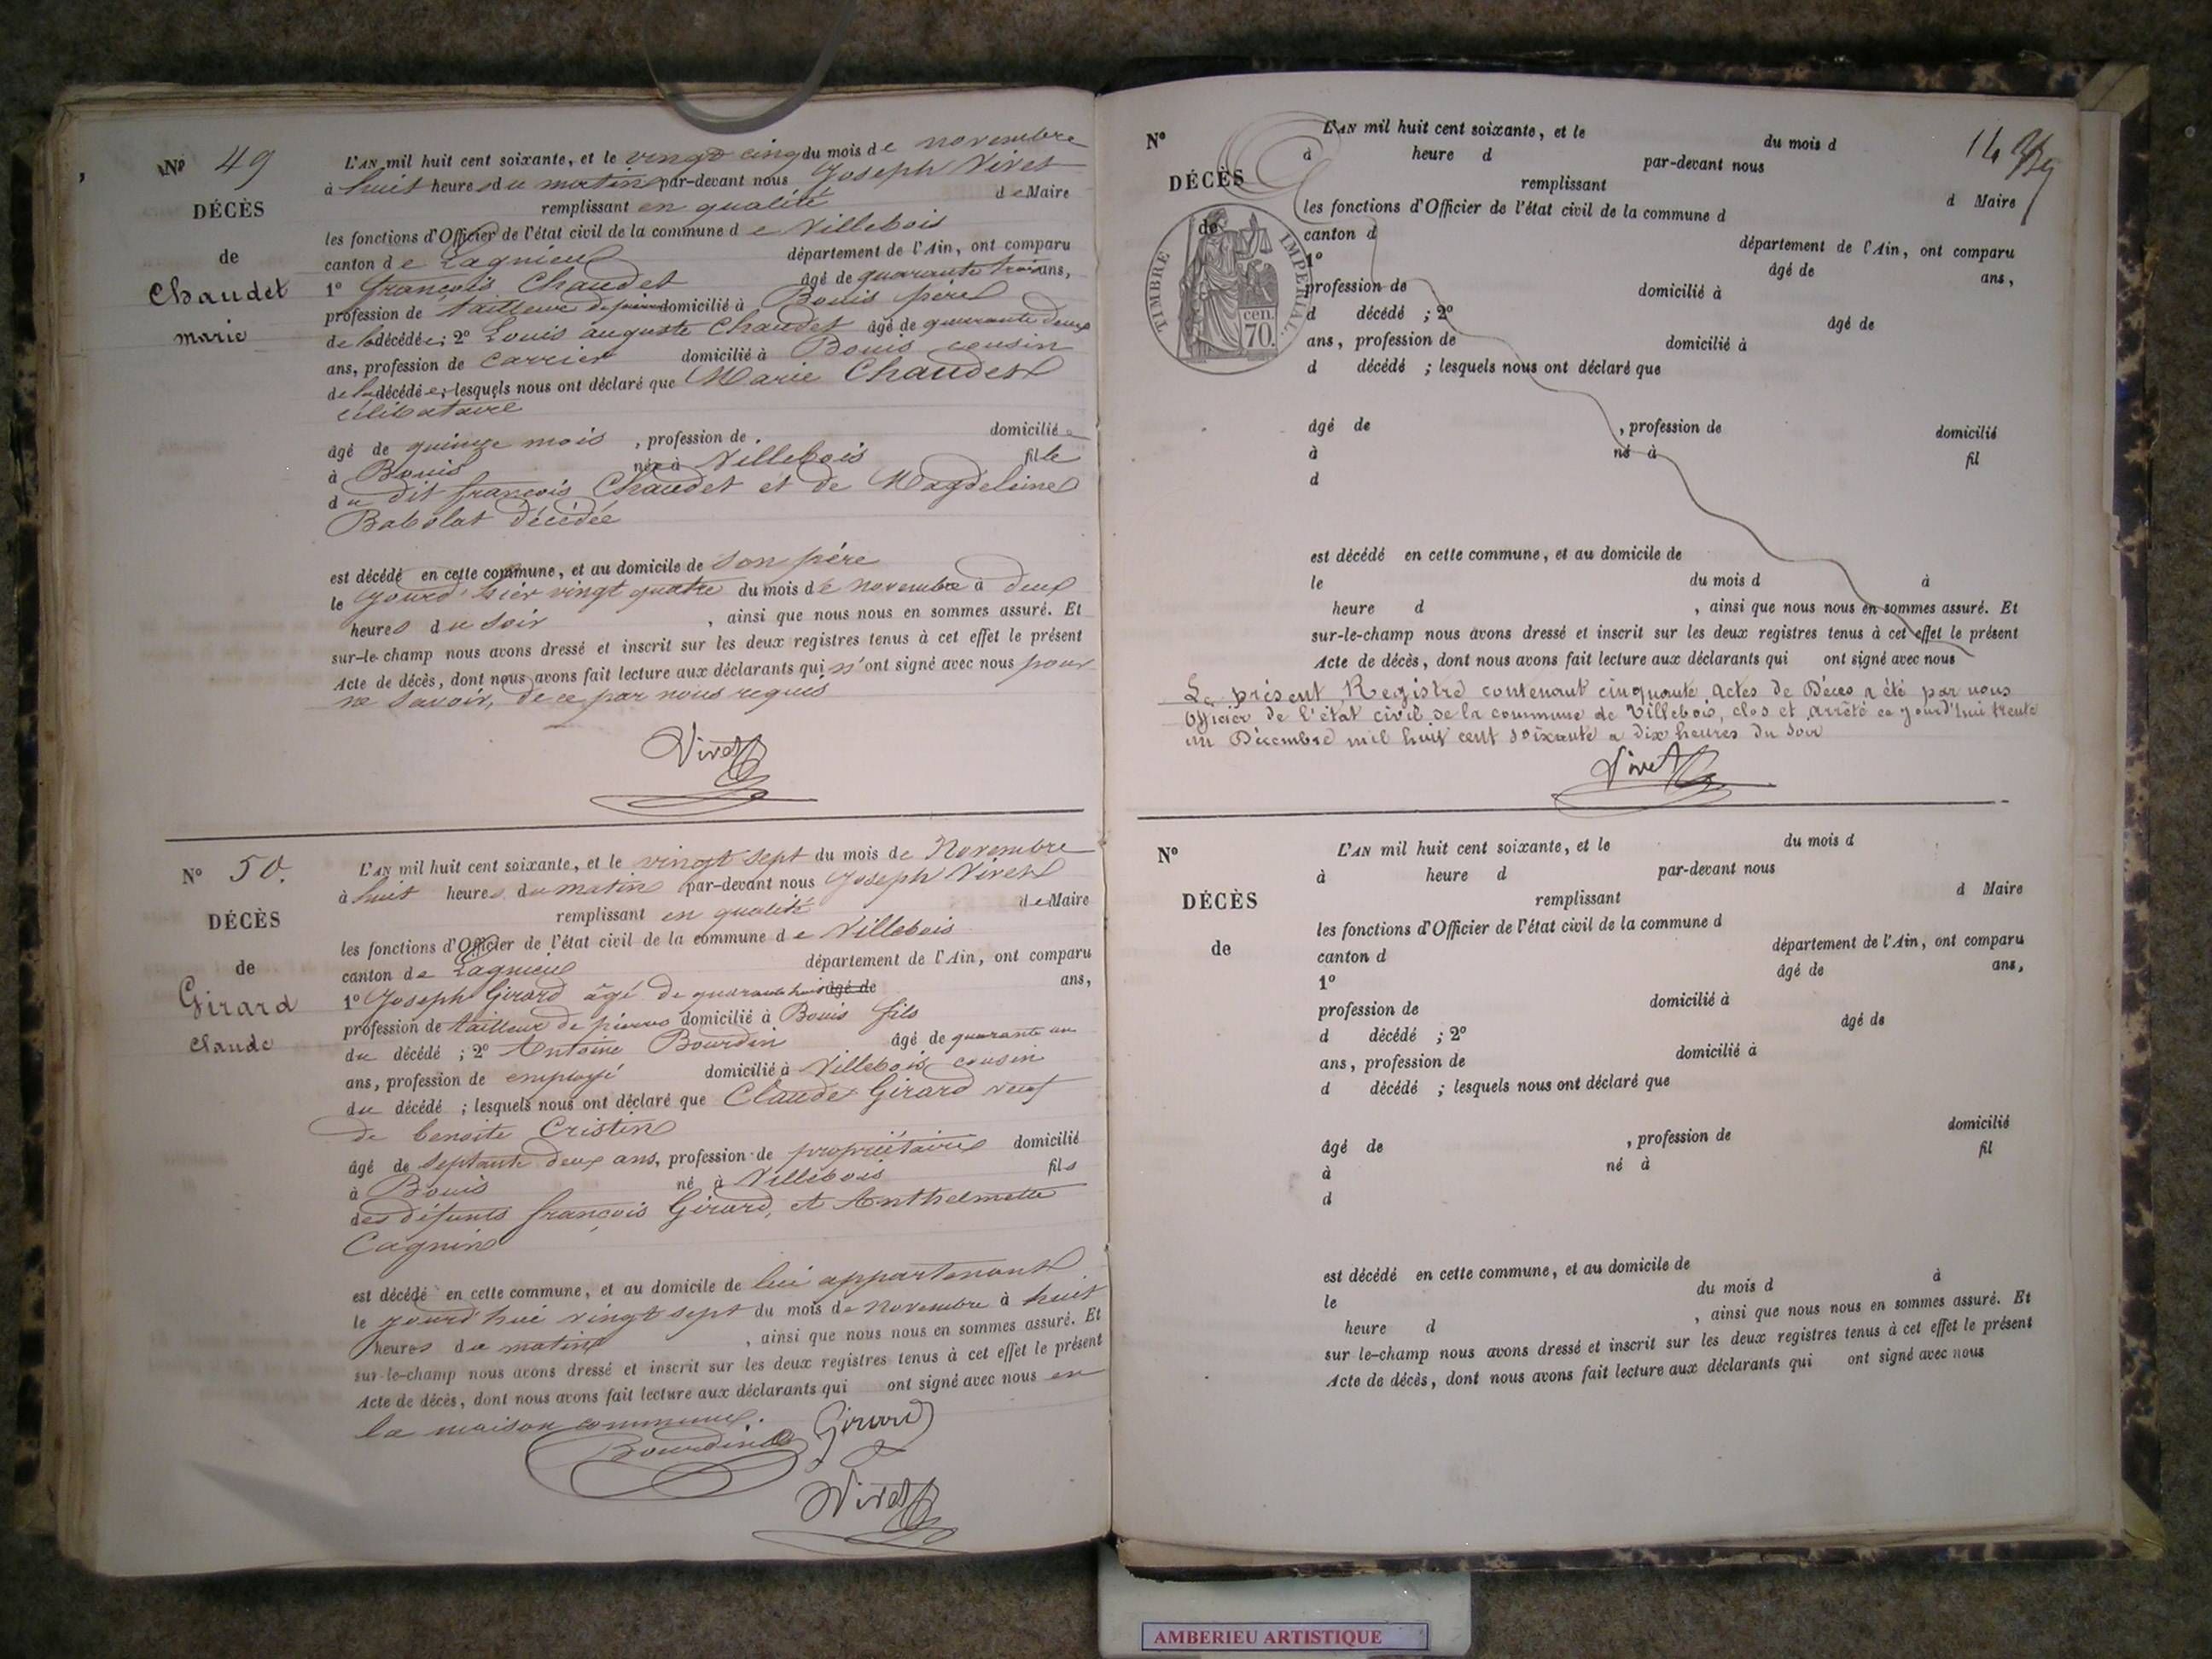 N° 49
DÉCÈS
de
Chaudet
marie
L'AN mil huit cent soixante, et le vingt cinq du mois de novembre
à huit heures du matin par-devant nous Joseph Vivet
remplissant en qualité de Maire
les fonctions d'Officier de l'état civil de la commune de Villebois
canton de Lagnieu département de l'Ain, ont comparu
1° françois Chaudet âgé de quarante trois ans,
profession de tailleur de pierres domicilié à Bouis père
de la décédée; 2° Louis auguste Chaudet âgé de quarante deux
ans, profession de carrier domicilié à Bouis cousin
de la décédée; lesquels nous ont déclaré que Marie Chaudet
célibataire
âgé de quinze mois , profession de . domiciliée
à Bouis née à Villebois fille
du dit françois Chaudet et de Magdeleine
Babolat décédée
est décédé en cette commune, et au domicile de son père
le jourd'hier vingt quatre du mois de novembre à deux
heures du soir , ainsi que nous nous en sommes assuré. Et
sur-le-champ nous avons dressé et inscrit sur les deux registres tenus à cet effet le présent
Acte de décès, dont nous avons fait lecture aux déclarants qui n'ont signé avec nous pour
ne savoir, de ce par nous requis
Vivet
N° 50.
DÉCÈS
de
Girard
Claude
L'AN mil huit cent soixante, et le vingt sept du mois de Novembre
à huit heures du matin par-devant nous Joseph Vivet
remplissant en qualité de Maire
les fonctions d'Officier de l'état civil de la commune de Villebois
canton de Lagnieu département de l'Ain, ont comparu
1° Joseph Girard âgé de quarante huit âgé de ans,
profession de tailleur de pierres domicilié à Bouis fils
du décédé ; 2° Antoine Bourdin âgé de quarante un
ans, profession de employé domicilié à Villebois cousin
du décédé ; lesquels nous ont déclaré que Claude Girard veuf
de benoite Cristin
âgé de septante deux ans, profession de propriétaire domicilié
à Bouis né à Villebois fils
des défunts françois Girard, et Anthelmette
Cagnin
est décédé en cette commune, et au domicile de lui appartenant
le jourd'hui vingt sept du mois de novembre à huit
heures du matin , ainsi que nous nous en sommes assuré. Et
sur-le-champ nous avons dressé et inscrit sur les deux registres tenus à cet effet le présent
Acte de décès, dont nous avons fait lecture aux déclarants qui ont signé avec nous en
la maison commune.
Bourdin Girard
Vivet
N°
DÉCÈS
de
TIMBRE IMPERIAL
cen.
70.
14
L'AN mil huit cent soixante, et le du mois d
d heure d par-devant nous
remplissant d Maire
les fonctions d'Officier de l'état civil de la commune d
canton d département de l'Ain, ont comparu
1° âgé de ans,
profession de domicilié à
d décédé ; 2° âgé de
ans, profession de domicilié à
d décédé ; lesquels nous ont déclaré que
âgé de , profession de domicilié
à né à fil
d
est décédé en cette commune, et au domicile de
le du mois d à
heure d , ainsi que nous nous en sommes assuré. Et
sur-le-champ nous avons dressé et inscrit sur les deux registres tenus à cet effet le présent
Acte de décès, dont nous avons fait lecture aux déclarants qui ont signé avec nous
Le présent Registre contenant cinquante actes de Décès a été par nous
Officier de l'état civil de la commune de Villebois, clos et arrêté ce jourd'hui trente
un Décembre mil huit cent soixante a dix heures du soir
Vivet
N°
DÉCÈS
de
L'AN mil huit cent soixante, et le du mois d
à heure d par-devant nous
remplissant d Maire
les fonctions d'Officier de l'état civil de la commune d
canton d département de l'Ain, ont comparu
1° âgé de ans,
profession de domicilié à
d décédé ; 2° âgé de
ans, profession de domicilié à
d décédé ; lesquels nous ont déclaré que
âgé de , profession de domicilié
à né à fil
d
est décédé en cette commune, et au domicile de
le du mois d à
heure d , ainsi que nous nous en sommes assuré. Et
sur le-champ nous avons dressé et inscrit sur les deux registres tenus à cet effet le présent
Acte de décès, dont nous avons fait lecture aux déclarants qui ont signé avec nous
AMBERIEU ARTISTIQUE